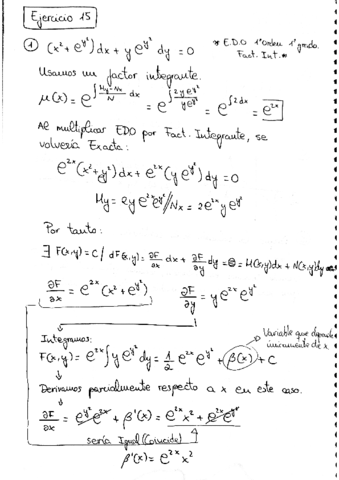 Ejercicio 15
① (x² + e^{y²}) dx + y e^{y²} dy = 0
* E.D.O 1ºOrden 1ºgrado.
Fact. Int. *
Usamos un factor integrante.
μ(x) = e^{∫ (My-Nx)/N dx} = e^{∫ 2ye^{y²}/ye^{y²}} = e^{∫2dx} = e^{2x}
Al multiplicar EDO por Fact. Integrante, se
volvería Exacta:
e^{2x}(x²+y²) dx + e^{2x}(y e^{y²}) dy = 0
My = 2y e^{2x} e^{y²} // Nx = 2e^{2x} y e^{y²}
Por tanto:
∃ F(x,y) = C / dF(x,y) = ∂F/∂x dx + ∂F/∂y dy = 0 = M(x,y)dx + N(x,y)dy
∂F/∂x = e^{2x}(x² + e^{y²}) ∂F/∂y = y e^{2x} e^{y²}
Variable que depende
únicamente de x
Integramos:
F(x,y) = e^{2x} ∫ y e^{y²} dy = 1/2 e^{2x} e^{y²} + β(x) + C
Derivamos parcialmente respecto a x en este caso.
∂F/∂x = e^{y²} e^{2x} + β'(x) = e^{2x} x² + e^{2x} e^{y²}
sería Igual (Coincide)
β'(x) = e^{2x} x²